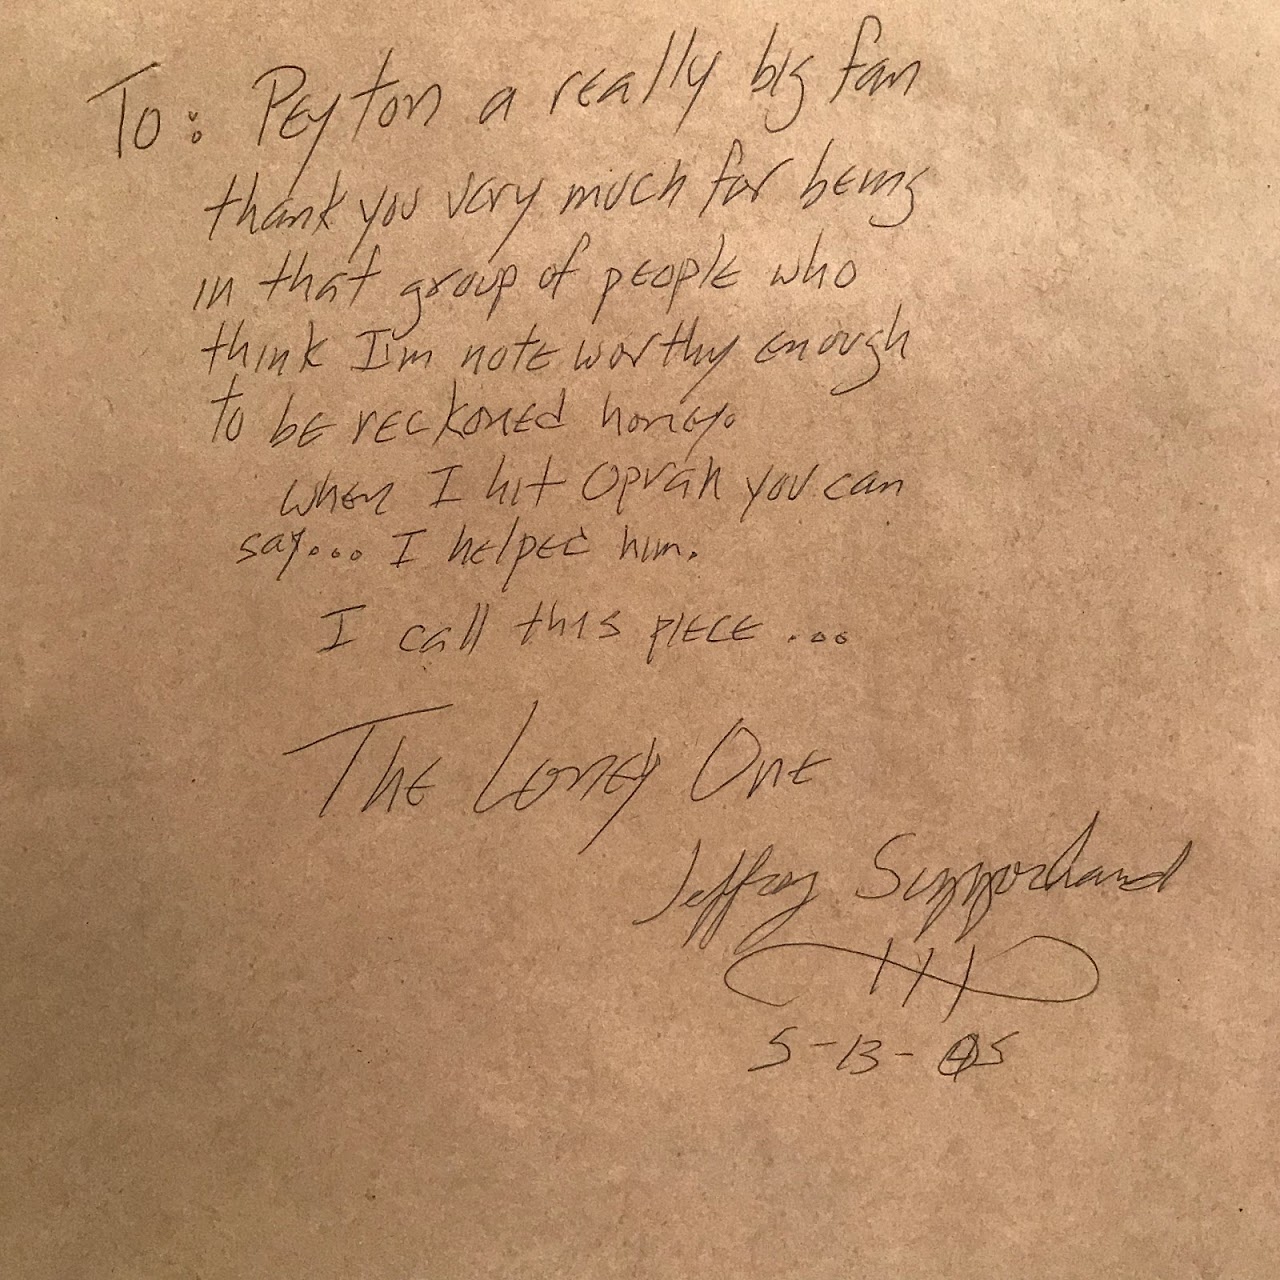 To: Peyton a really big fan
thank you very much for being
in that group of people who
think I'm note worthy enough
to be reckoned honey.
when I hit Oprah you can
say... I helped him.
I call this piece ...
The Loney One
Jeffrey
III
5-13-05